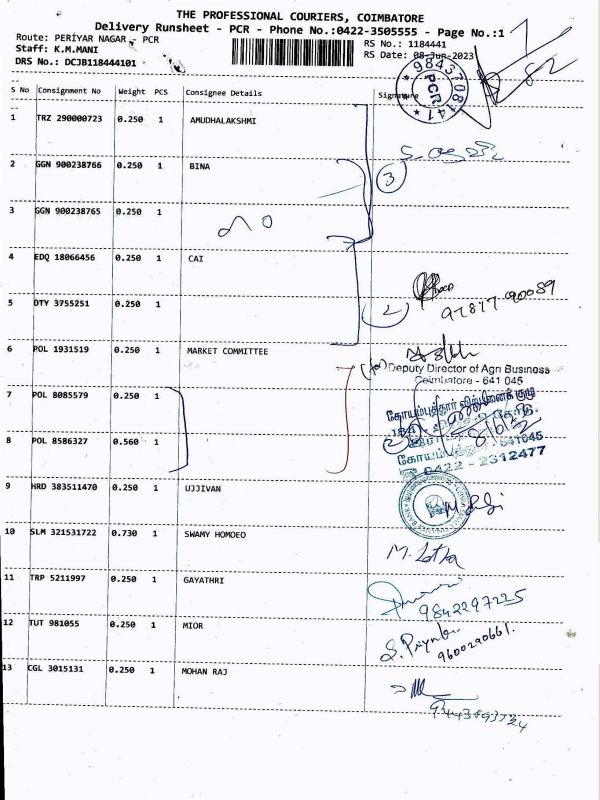 THE PROFESSIONAL COURIERS, COIMBATORE
Delivery Runsheet - PCR - Phone No.:0422-3505555 - Page No.:1
Route: PERIYAR NAGAR - PCR
RS No.: 1184441
Staff: K.M.MANI
RS Date: 08-Jun-2023
DRS No.: DCJB118444101
82
9843708441
PCR
S No Consignment No Weight PCS Consignee Details Signature
1 TRZ 290000723 0.250 1 AMUDHALAKSHMI
2 GGN 900238766 0.250 1 BINA
3
3 GGN 900238765 0.250 1
4 EDQ 18066456 0.250 1 CAI
5 DTY 3755251 0.250 1
2
6 POL 1931519 0.250 1 MARKET COMMITTEE
(for) Deputy Director of Agri Business
Coimbatore - 641 045
7 POL 8085579 0.250 1
8 POL 8586327 0.560 1
0422 - 2312477
9 HRD 383511470 0.250 1 UJJIVAN
10 SLM 321531722 0.730 1 SWAMY HOMOEO
M. Latha
11 TRP 5211997 0.250 1 GAYATHRI
9842297225
12 TUT 981055 0.250 1 MIOR
S. Priya
9600290661.
13 CGL 3015131 0.250 1 MOHAN RAJ